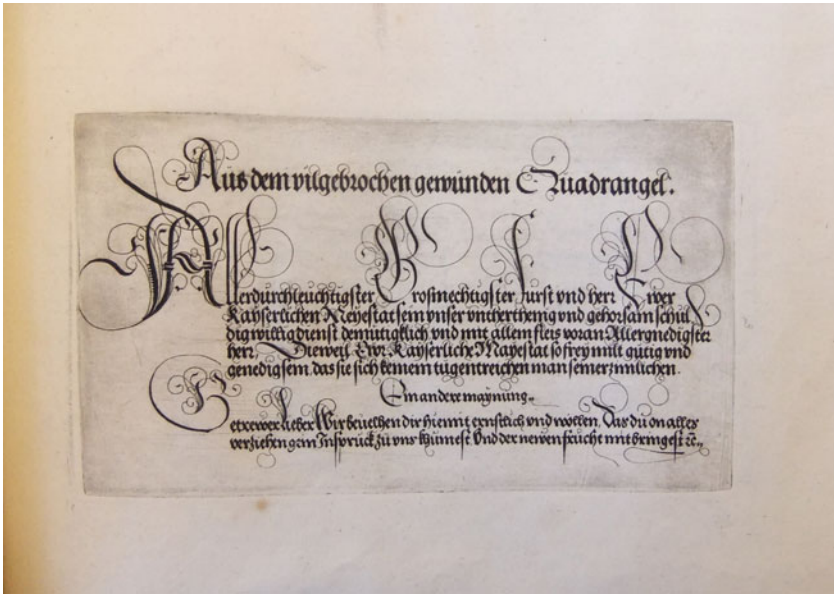 Aus dem vilgebrochen gewunden Quadrangel.
Allerdurchleuchtigster Grosmechtigster furst vnd herr Ewer
Kayserlichen Meyestat sein vnser vnthertheinig vnd gehorsam schul
dig willig dienst demutigklich vnd mit allem fleis voran Allergnedigster
herr Dieweil Ewr Kayserliche Mayestat so frey milt gutig vnd
genedig sein das sie sich keinem tugentreichen man seiner zimlichen.
Ein andere maynung.
Getrewer lieber Wir beuelhen dir hiemit ernstlich vnd wöllen Das du on alles
verziehen gein Inspruck zu vns khumest Vnd der newen frucht mit bringest ꝛc.